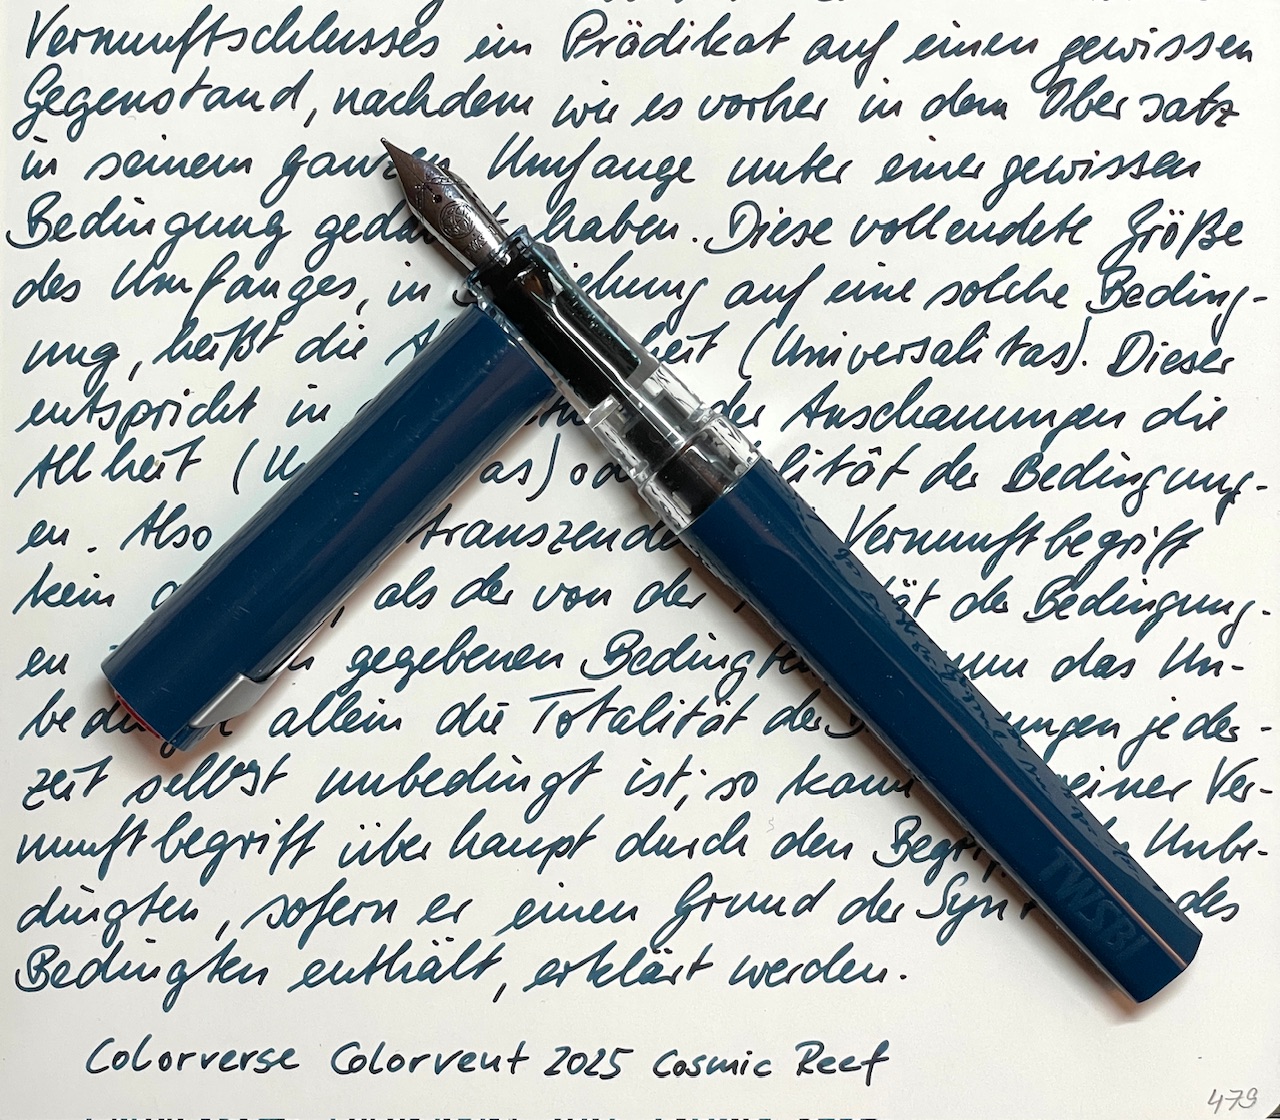 Vernunftschlusses ein Prädikat auf einen gewissen
Gegenstand, nachdem wir es vorher in dem Obersatz
in seinem ganzen Umfange unter einer gewissen
Bedingung gedacht haben. Diese vollendete Größe
des Umfanges, in Beziehung auf eine solche Beding-
ung, heißt die heit (Universalitas). Dieser
entspricht in der Anschauungen die
Allheit (U as) od lität der Bedingung-
en. Also transzende Vernunftbegriff
kein als der von der ät der Bedingung-
en gegebenen Bedingten nun das Un-
bedingte allein die Totalität der Bedingungen jeder-
zeit selbst unbedingt ist; so kann reiner Ver-
nunftbegriff überhaupt durch den Begriff Unbe-
dingten, sofern er einen Grund der Syn des
Bedingten enthält, erklärt werden.
Colorverse Colorvent 2025 Cosmic Reef
TWSBI
479